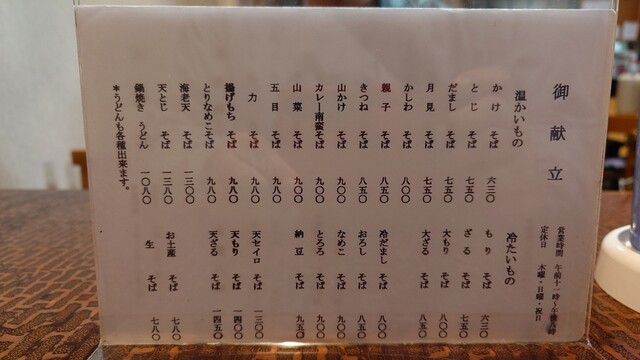 御献立
営業時間 午前十一時～午後八時
定休日 木曜・日曜・祝日
温かいもの
かけ そば 六三〇
とじ そば 七五〇
だまし そば 七五〇
月見 そば 七五〇
かしわ そば 八〇〇
親子 そば 八五〇
きつね そば 八五〇
山かけ そば 九〇〇
カレー南蛮そば 九〇〇
山菜 そば 九〇〇
五目 そば 九八〇
力 そば 九八〇
揚げもち そば 九八〇
とりなめこそば 九八〇
海老天 そば 一三〇〇
天とじ そば 一三八〇
鍋焼き うどん 一〇八〇
*うどんも各種出来ます。
冷たいもの
もり そば 六三〇
ざる そば 七五〇
大もり そば 八〇〇
大ざる そば 八五〇
冷だまし そば 八〇〇
おろし そば 八五〇
なめこ そば 九〇〇
とろろ そば 九〇〇
納豆 そば 九五〇
天セイロ そば 一三〇〇
天もり そば 一四〇〇
天ざる そば 一四五〇
お土産 そば 七八〇
生 そば 七八〇